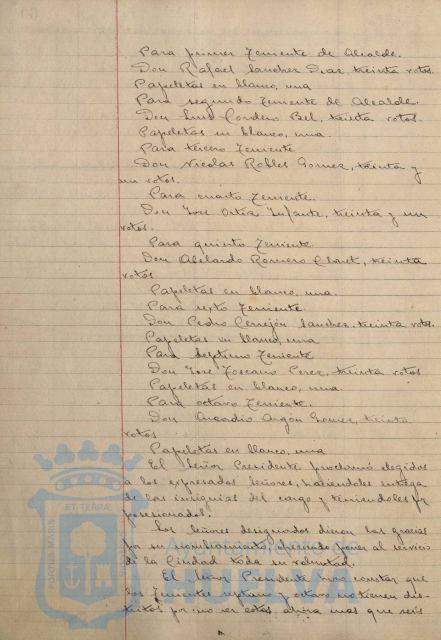 Para primer Teniente de Alcalde.
Don Rafael Sanchez Diaz, treinta votos.
Papeletas en blanco, una
Para segundo Teniente de Alcalde.
Don Luis Cordero Bel, treinta votos.
Papeletas en blanco, una.
Para tercero Teniente
Don Nicolas Robles Gomez, treinta y
un votos.
Para cuarto Teniente.
Don Jose Ortiz Infante, treinta y un
votos.
Para quinto Teniente
Don Abelardo Romero Claret, treinta
votos
Papeletas en blanco, una.
Para sexto Teniente
Don Pedro Cerrejón Sanchez, treinta votos.
Papeletas en blanco, una
Para septimo Teniente
Don Jose Toscano Perez, treinta votos
Papeletas en blanco, una.
Para octavo Teniente.
Don Arcadio Aragón Gomez, treinta
votos
Papeletas en blanco, una
El Señor Presidente proclamó elegidos
a los expresados Señores, haciendoles entrega
de las insignias del cargo y teniendoles por
posesionados.
Los Señores designados dieron las gracias
por su nombramiento, ofreciendo poner al servicio
de la Ciudad toda su voluntad.
El Señor Presidente hizo constar que
los Tenientes septimo y octavo no tienen dis-
tritos por no ser estos ahora mas que seis
PORTUS MARIS
ET TERRÆ
Ayuntamiento de
HUELVA